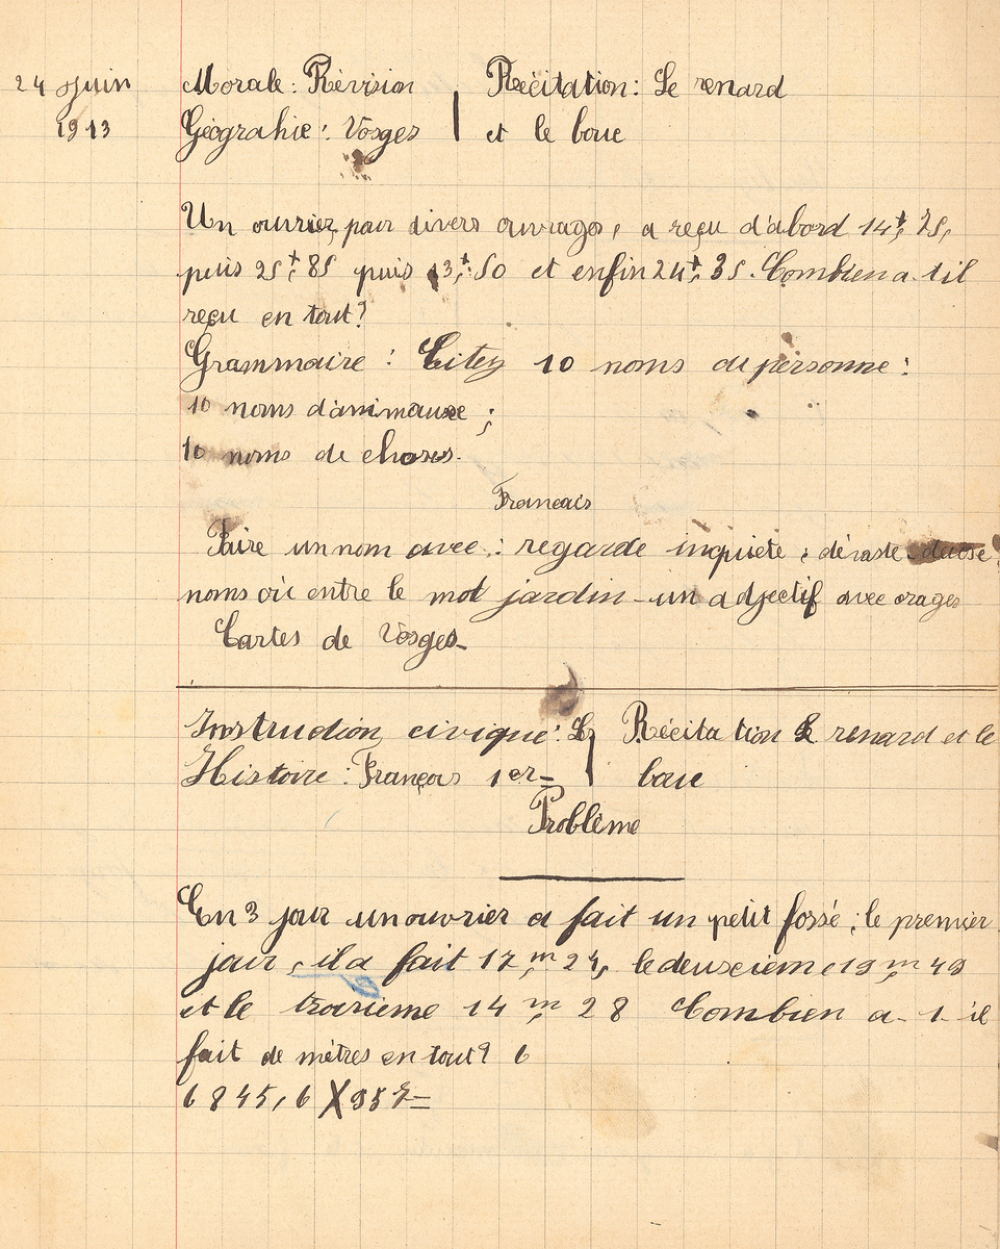 24 Juin
1913
Morale : Révision
Géograhie : Vosges
Récitation : Le renard
et le bouc
Un ouvrier, pour divers ouvrages, a reçu d'abord 14f, 75,
puis 25f, 85 puis 13f, 50 et enfin 24f, 35. Combien a-t-il
reçu en tout ?
Grammaire : Citez 10 noms de personne :
10 noms d'animauxe ;
10 noms de choses.
Francais
Faire un nom avec : regarde inquiete ; dévaste
noms où entre le mot jardin - un adjectif avec orages
Cartes de Vosges -
Instruction civique : Le
Histoire : François 1er -
Récitation Le renard et le
bouc
Problème
En 3 jour un ouvrier a fait un petit fossé ; le premier
jour, il a fait 17 m, 24, le deuxcieme 19 m, 49
et le troisieme 14 m, 28 Combien a-t-il
fait de mètres en tout ? 6
6845,6 X 957 =